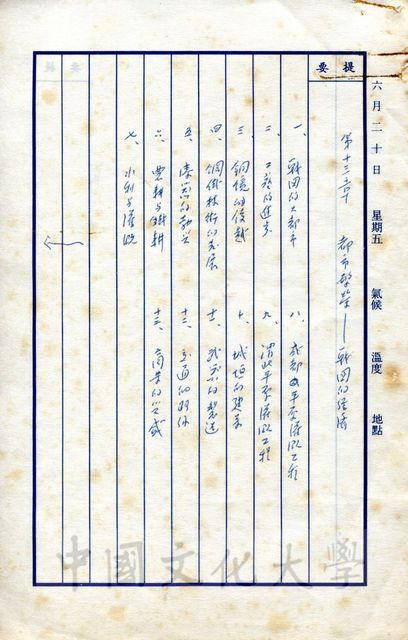 提要
六月二十日 星期五 氣候 溫度 地點
第十三章 都市繁榮——戰國的經濟
一、戰國的大都市
二、工藝的進步
三、銅鏡的優越
四、鋼鐵技術的發展
五、漆器的
六、農耕與
七、水利與灌溉
八、成都平原灌溉工程
九、渭北平原灌溉工程
十、城垣的建築
十一、武器的製造
十二、交通的
十三、商業的興盛
中國文化大學